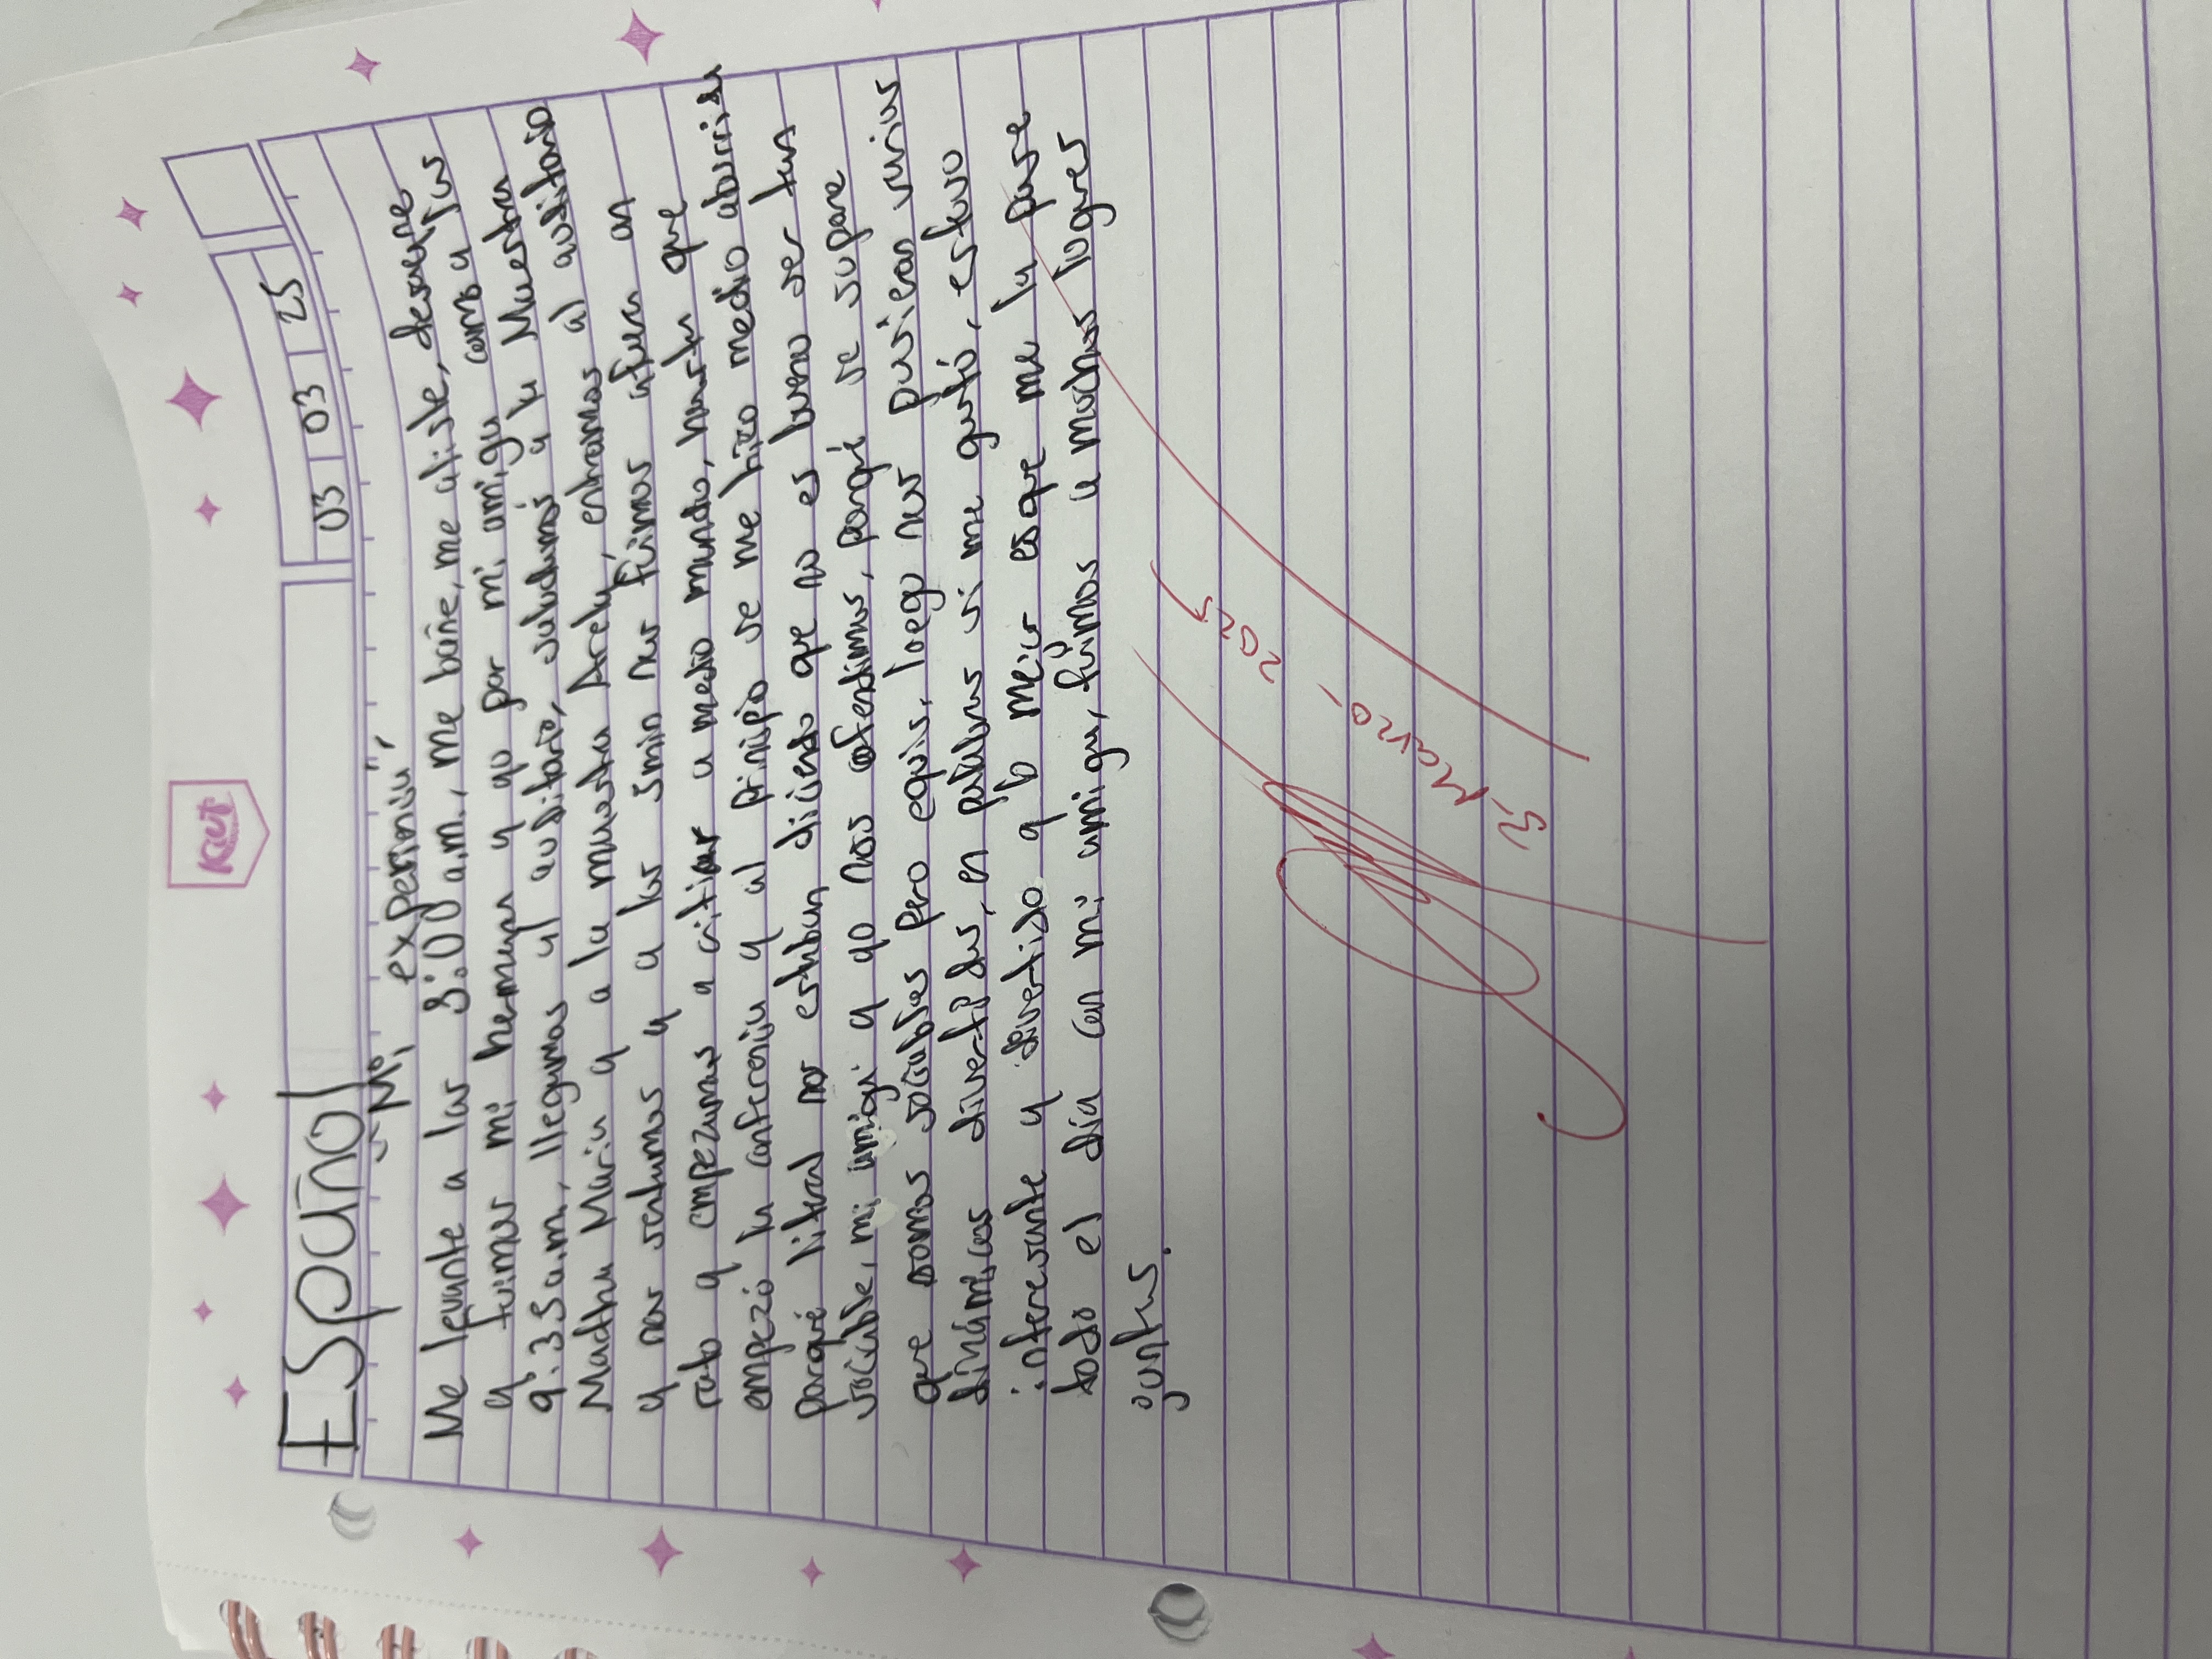 Kiut
Español
03 03 25
"Mi experiencia",
Me levante a las 8:00 a.m., me bañe, me aliste, desayune
y fuimos mi hermana y yo por mi amiga como a las
9:35 a.m, llegamos al auditorio, saludamos a la Maestra
Martha María y a la maestra Arely, entramos al auditorio
y nos sentamos y a los 5min nos fuimos afuera un
rato y empezamos a criticar a medio mundo, hasta que
empezó la conferencia y al principio se me hizo medio aburrida
porqué literal nos estaban diciendo que no es bueno ser tan
sociable, mi amiga y yo nos ofendimos, porqué se supone
que somos sociables pero equis, luego nos pusieron varias
dinámicas divertidas, en palabras si me gustó, estuvo
interesante y divertido y lo mejor es que me la pase
todo el día con mi amiga, fuimos a muchos lugares
juntas.
3-Marzo-2025